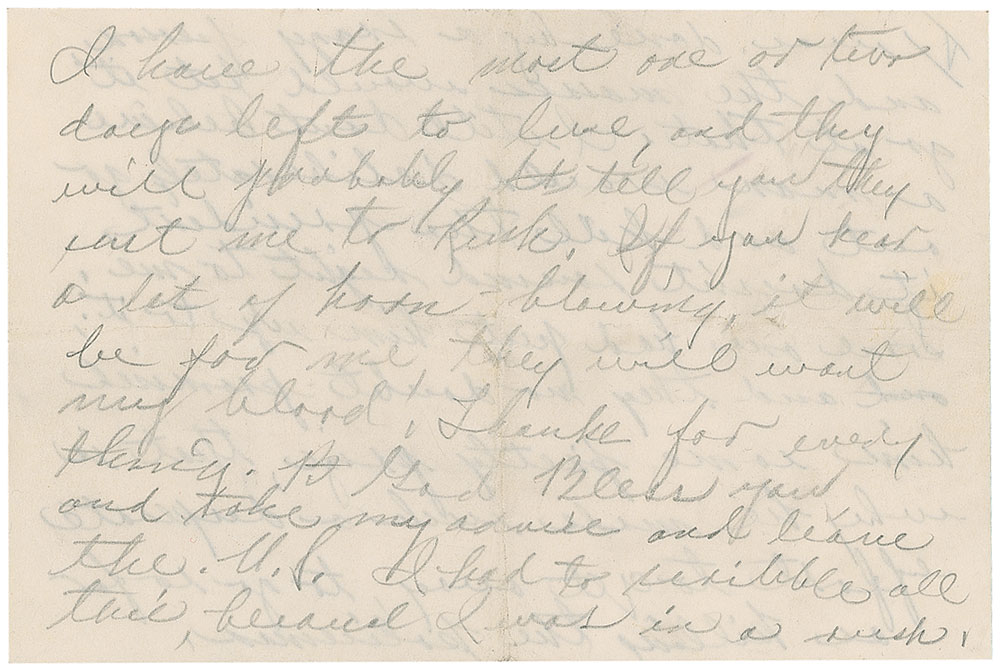 I have the most one or two
days left to live, and they
will probably tell you they
me to Rusk. If you hear
a lot of horn-blowing, it will
be for me they will want
my blood. Thanks for every
thing. God Bless you
and take my advise and leave
the. U.S. I had to scribble all
this, because I was in a rush.